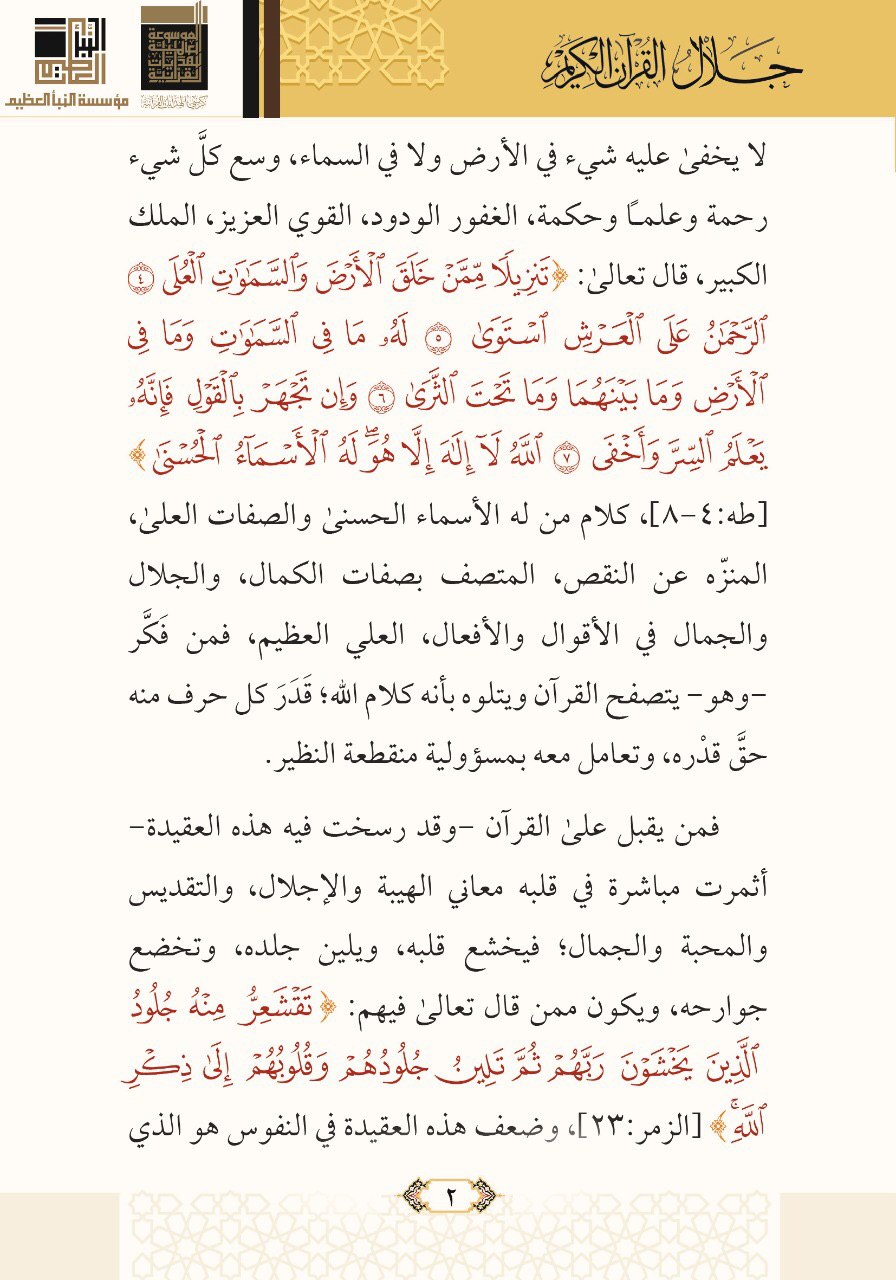 جلال القرآن الكريم
مؤسسة النبأ العظيم
لا يخفىٰ عليه شيء في الأرض ولا في السماء، وسع كلَّ شيء
رحمة وعلمـًا وحكمة، الغفور الودود، القوي العزيز، الملك
الكبير، قال تعالىٰ: ﴿تَنزِيلٗا مِّمَّنۡ خَلَقَ ٱلۡأَرۡضَ وَٱلسَّمَٰوَٰتِ ٱلۡعُلَى ٤
ٱلرَّحۡمَٰنُ عَلَى ٱلۡعَرۡشِ ٱسۡتَوَىٰ ٥ لَهُۥ مَا فِي ٱلسَّمَٰوَٰتِ وَمَا فِي
ٱلۡأَرۡضِ وَمَا بَيۡنَهُمَا وَمَا تَحۡتَ ٱلثَّرَىٰ ٦ وَإِن تَجۡهَرۡ بِٱلۡقَوۡلِ فَإِنَّهُۥ
يَعۡلَمُ ٱلسِّرَّ وَأَخۡفَى ٧ ٱللَّهُ لَآ إِلَٰهَ إِلَّا هُوَۖ لَهُ ٱلۡأَسۡمَآءُ ٱلۡحُسۡنَىٰ﴾
[طه:٤-٨]، كلام من له الأسماء الحسنىٰ والصفات العلىٰ،
المنزّه عن النقص، المتصف بصفات الكمال، والجلال
والجمال في الأقوال والأفعال، العلي العظيم، فمن فَكَّر
-وهو- يتصفح القرآن ويتلوه بأنه كلام الله؛ قَدَرَ كل حرف منه
حقَّ قدْره، وتعامل معه بمسؤولية منقطعة النظير.
فمن يقبل علىٰ القرآن -وقد رسخت فيه هذه العقيدة-
أثمرت مباشرة في قلبه معاني الهيبة والإجلال، والتقديس
والمحبة والجمال؛ فيخشع قلبه، ويلين جلده، وتخضع
جوارحه، ويكون ممن قال تعالىٰ فيهم: ﴿تَقۡشَعِرُّ مِنۡهُ جُلُودُ
ٱلَّذِينَ يَخۡشَوۡنَ رَبَّهُمۡ ثُمَّ تَلِينُ جُلُودُهُمۡ وَقُلُوبُهُمۡ إِلَىٰ ذِكۡرِ
ٱللَّهِۚ﴾ [الزمر:٢٣]، وضعف هذه العقيدة في النفوس هو الذي
٢